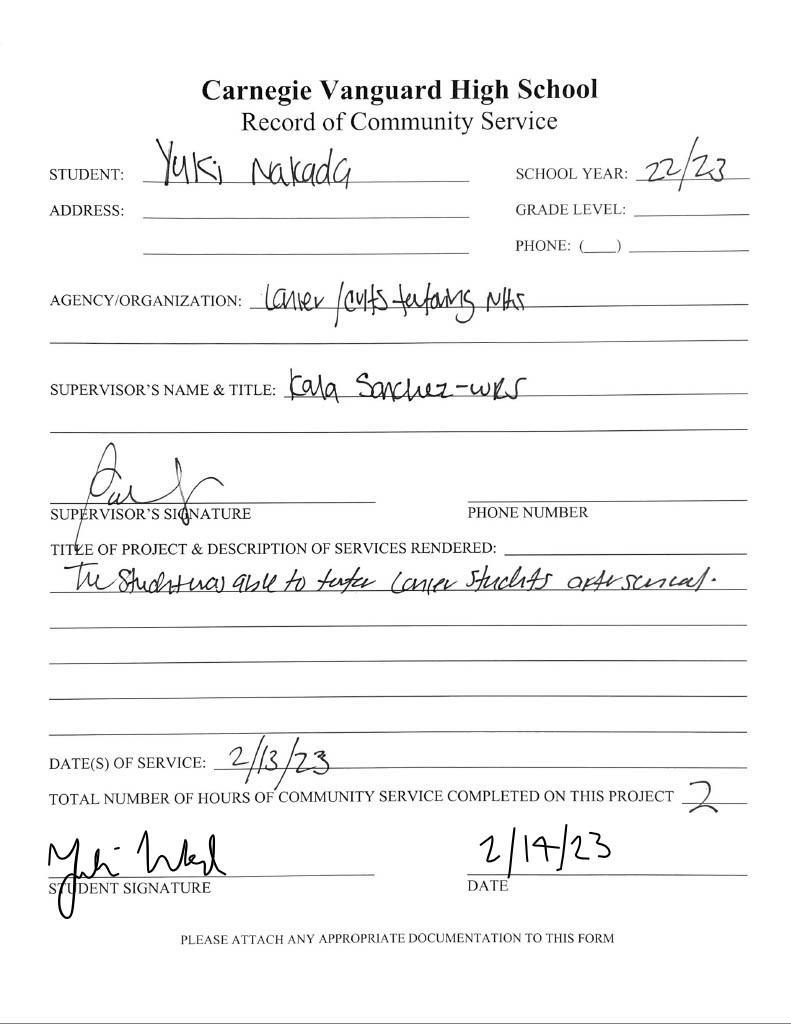 Carnegie Vanguard High School
Record of Community Service
STUDENT: Yuki Nakada
SCHOOL YEAR: 22/23
ADDRESS:
GRADE LEVEL:
PHONE: (___)
AGENCY/ORGANIZATION: Lanier / tutoring NHS
SUPERVISOR'S NAME & TITLE: Kala Sanchez-
SUPERVISOR'S SIGNATURE
PHONE NUMBER
TITLE OF PROJECT & DESCRIPTION OF SERVICES RENDERED:
The Student was able to tutor Lanier students after school.
DATE(S) OF SERVICE: 2/13/23
TOTAL NUMBER OF HOURS OF COMMUNITY SERVICE COMPLETED ON THIS PROJECT 2
2/14/23
STUDENT SIGNATURE
DATE
PLEASE ATTACH ANY APPROPRIATE DOCUMENTATION TO THIS FORM